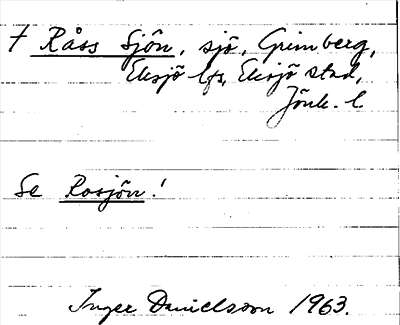 † Råss Sjön, sjö, Grimberg,
Eksjö lfs, Eksjö stad,
Jönk. l.
Se Rosjön!
Inger Danielsson 1963.